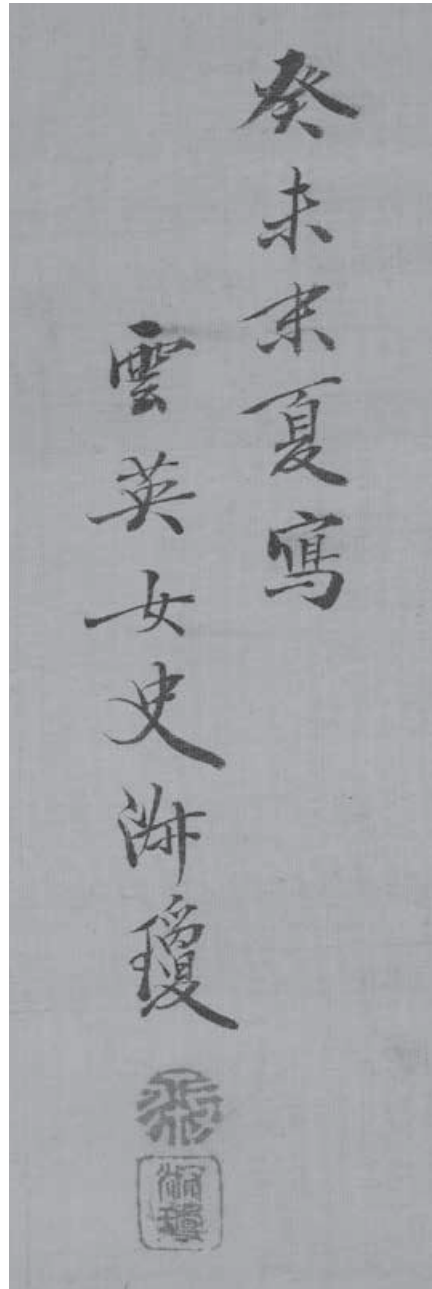 癸未末夏寫
雲英女史瓊